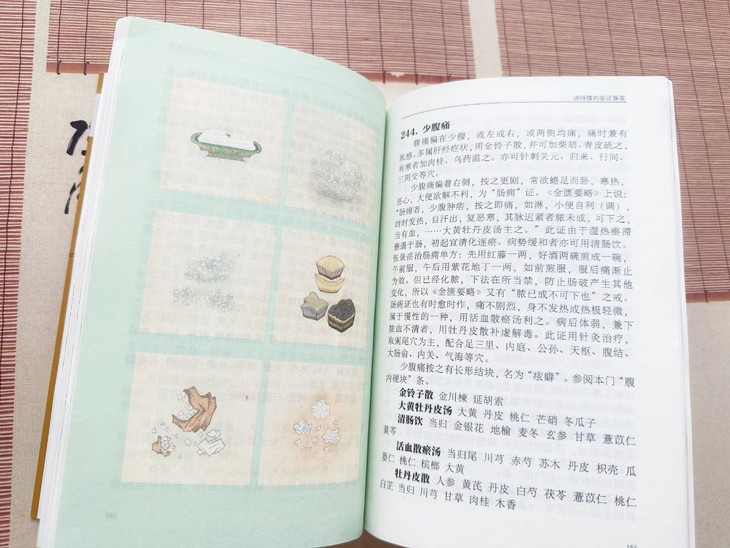 读得懂的临证备要
244. 少腹痛
腹痛偏在少腹,或左或右,或两侧均痛,痛时兼有
胀感。多属肝经症状,用金铃子散,并可加柴胡、青皮疏之,
有寒者加肉桂、乌药温之。亦可针刺关元、归来、行间、
三阴交等穴。
少腹痛偏着右侧,按之更剧,常欲蜷足而卧,寒热,
恶心,大便欲解不利,为“肠痈”证。《金匮要略》上说:
“肠痈者,少腹肿痞,按之即痛,如淋,小便自利(调),
时时发热,自汗出,复恶寒,其脉迟紧者脓未成,可下之,
当有血,……大黄牡丹皮汤主之。”此证由于湿热瘀滞
壅遏于肠,初起宜清化逐瘀。病势缓和者亦可用清肠饮。
张景岳治肠痈单方:先用红藤一两,好酒两碗煎成一碗,
午前服,午后用紫花地丁一两,如前煎服,服后痛渐止
为效。但已经化脓,下法在所当禁,防止肠破产生其他
变化,所以《金匮要略》又有“脓已成不可下也”之戒。
肠痈证也有时愈时作,痛不剧烈,身不发热或热极轻微,
属于慢性的一种,用活血散瘀汤利之。病后体弱,兼下
脓血不清者,用牡丹皮散补虚解毒。此证用针灸治疗,
取阑尾穴为主,配合足三里、内庭、公孙、天枢、腹结、
大肠俞、内关、气海等穴。
少腹痛按之有长形结块,名为“痃癖”。参阅本门“腹
内硬块”条。
金铃子散 金川楝 延胡索
大黄牡丹皮汤 大黄 丹皮 桃仁 芒硝 冬瓜子
清肠饮 当归 金银花 地榆 麦冬 玄参 甘草 薏苡仁
黄芩
活血散瘀汤 当归尾 川芎 赤芍 苏木 丹皮 枳壳 瓜
蒌仁 桃仁 槟榔 大黄
牡丹皮散 人参 黄芪 丹皮 白芍 茯苓 薏苡仁 桃仁
白芷 当归 川芎 甘草 肉桂 木香